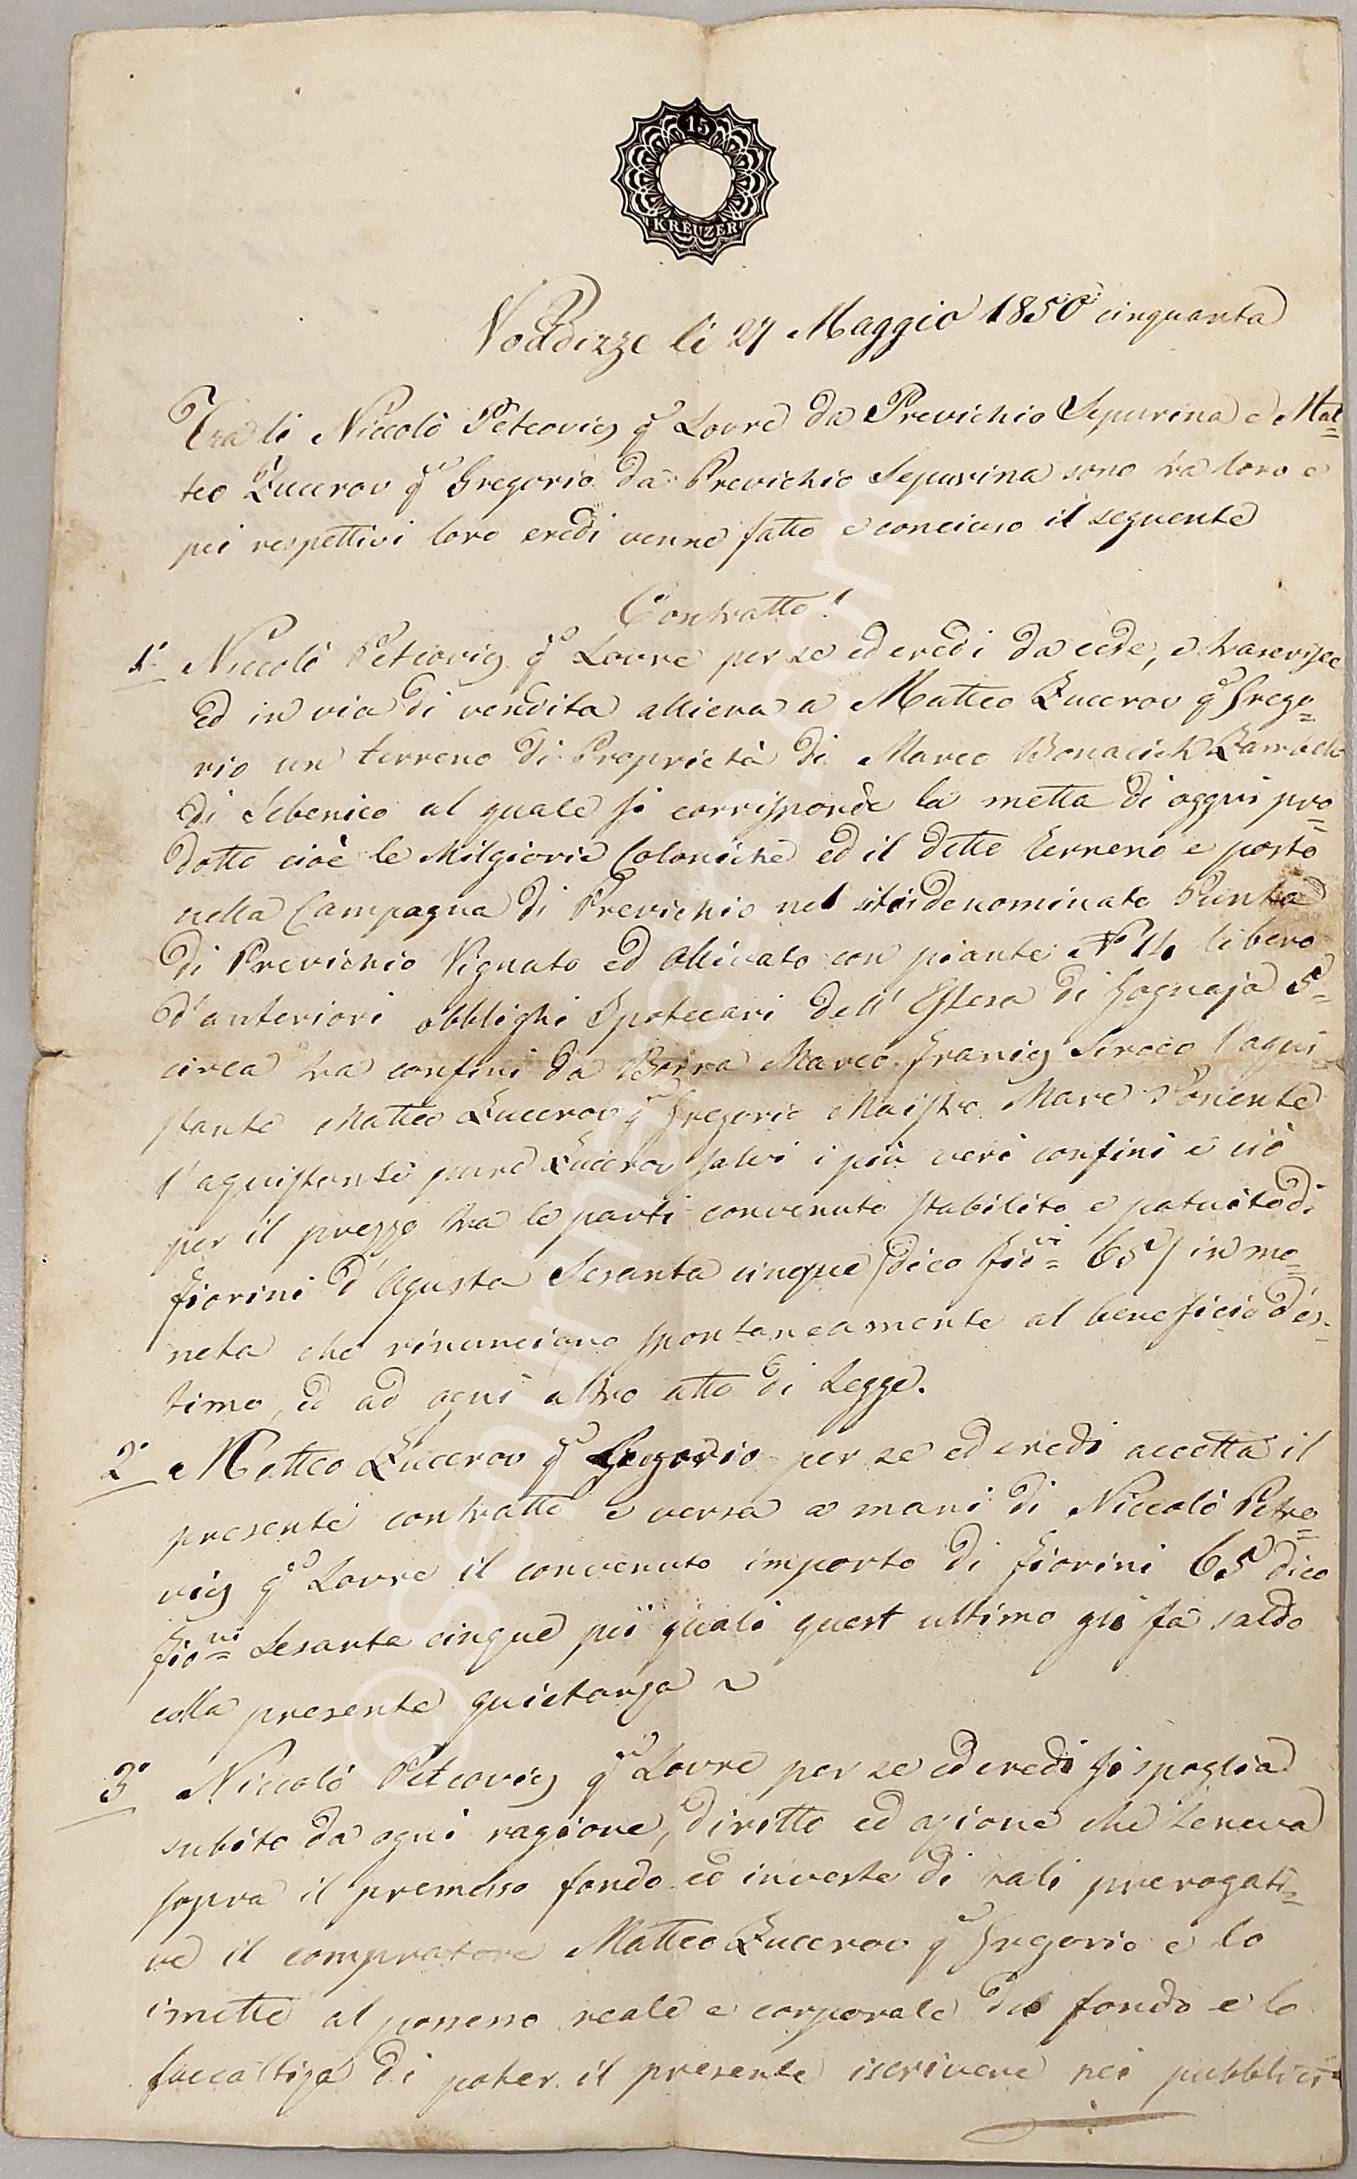 15
KREUZER
Vodizze li 27 Maggio 1850 cinquanta
Tra li Niccolò Petcovig q.m Lovre da Previchio Sepurina e Mat=
teo Zucerov q.m Gregorio da Previchio Sepurina sono tra loro e
pei respettivi loro eredi venne fatto e conciuso il seguente
Contratto!
1° Niccolò Petcovig q.m Lovre per se ed eredi da cede, e trasferisce
ed in via di vendita alliena a Matteo Zucerov q.m Grego=
rio un terreno di Proprietà di Marco Bonacich Zambelo
di Sebenico al quale si corrisponde la metta di oggni pro=
dotto cioè le Milgiorie Coloniche ed il detto terreno e posto
nella Campagna di Previchio nel sito denominato Punta
di Previchio Vignato ed Olivato con piante N° 14 libero
d'anteriori obblighi Ipotecari dell' Estesa di Gognaja 5=
circa tra confini da Borra Marco Franig Siroco l'aqui=
stante Matteo Zucerov q.m Gregorio Maistro Mare Ponente
l'aquistante pure Zucerov salvi i più veri confini e ciò
per il prezzo tra le parti convenuto stabilito e patuito di
fiorini d'Agusta Sesanta cinque (dico fio=ni 65) in mo=
neta che rinunciano spontaneamente al beneficio d'es=
timo, ed ad ogni altro atto di Legge.
2° Matteo Zucerov q.m Gregorio per se ed eredi accetta il
presente contratto e versa a mani di Niccolò Petco=
vig q.m Lovre il convenuto importo di fiorini 65 dico
fio=ni Sesanta cinque pei quali quest ultimo gli fà saldo
colla presente quietanza ~
3° Niccolò Petcovig q.m Lovre per se ed eredi si spoglia
subito da ogni ragione, diritto ed azione che teneva
sopra il premesso fondo ed investe di tali prerogati=
ve il compratore Matteo Zucerov q.m Gregorio e lo
imette al possesso reale e corporale del fondo e lo
faccoltiza di poter il presente iscrivere nei pubblici=
© sepurinaretro.com